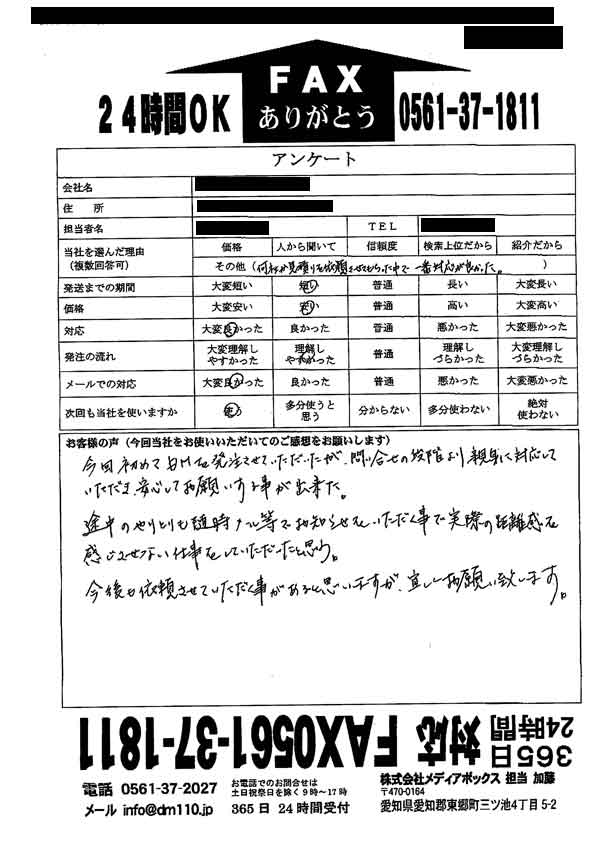 FAX
ありがとう
24時間OK
0561-37-1811
アンケート
会社名
住 所
担当者名 TEL
当社を選んだ理由（複数回答可） 価格 人から聞いて 信頼度 検索上位だから 紹介だから
その他（何社か見積りを依頼させてもらった中で一番対応が良かった。）
発送までの期間 大変短い 短い 普通 長い 大変長い
価格 大変安い 安い 普通 高い 大変高い
対応 大変良かった 良かった 普通 悪かった 大変悪かった
発注の流れ 大変理解しやすかった 理解しやすかった 普通 理解しづらかった 大変理解しづらかった
メールでの対応 大変良かった 良かった 普通 悪かった 大変悪かった
次回も当社を使いますか 使う 多分使うと思う 分からない 多分使わない 絶対使わない
お客様の声（今回当社をお使いいただいてのご感想をお願いします）
今回初めてDMを発注させていただいたが、問い合せの段階より親身に対応して
いただき、安心してお願いする事が出来た。
途中のやりとりも随時メール等でお知らせをいただく事で実際の距離感を
感じさせない仕事をしていただいたと思う。
今後も依頼させていただく事があると思いますが、宜しくお願い致します。
365日24時間対応 FAX0561-37-1811
電話 0561-37-2027
メール info@dm110.jp
お電話でのお問合せは
土日祝祭日を除く9時～17時
365日 24時間受付
株式会社メディアボックス 担当 加藤
〒470-0164
愛知県愛知郡東郷町三ツ池4丁目5-2